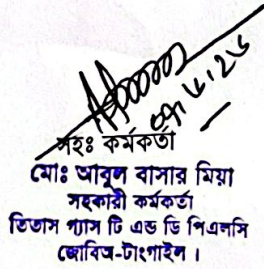 ০৭/৬/২৬
সহঃ কর্মকর্তা
মোঃ আবুল বাসার মিয়া
সহকারী কর্মকর্তা
তিতাস গ্যাস টি এন্ড ডি পিএলসি
জোবিঅ-টাংগাইল।